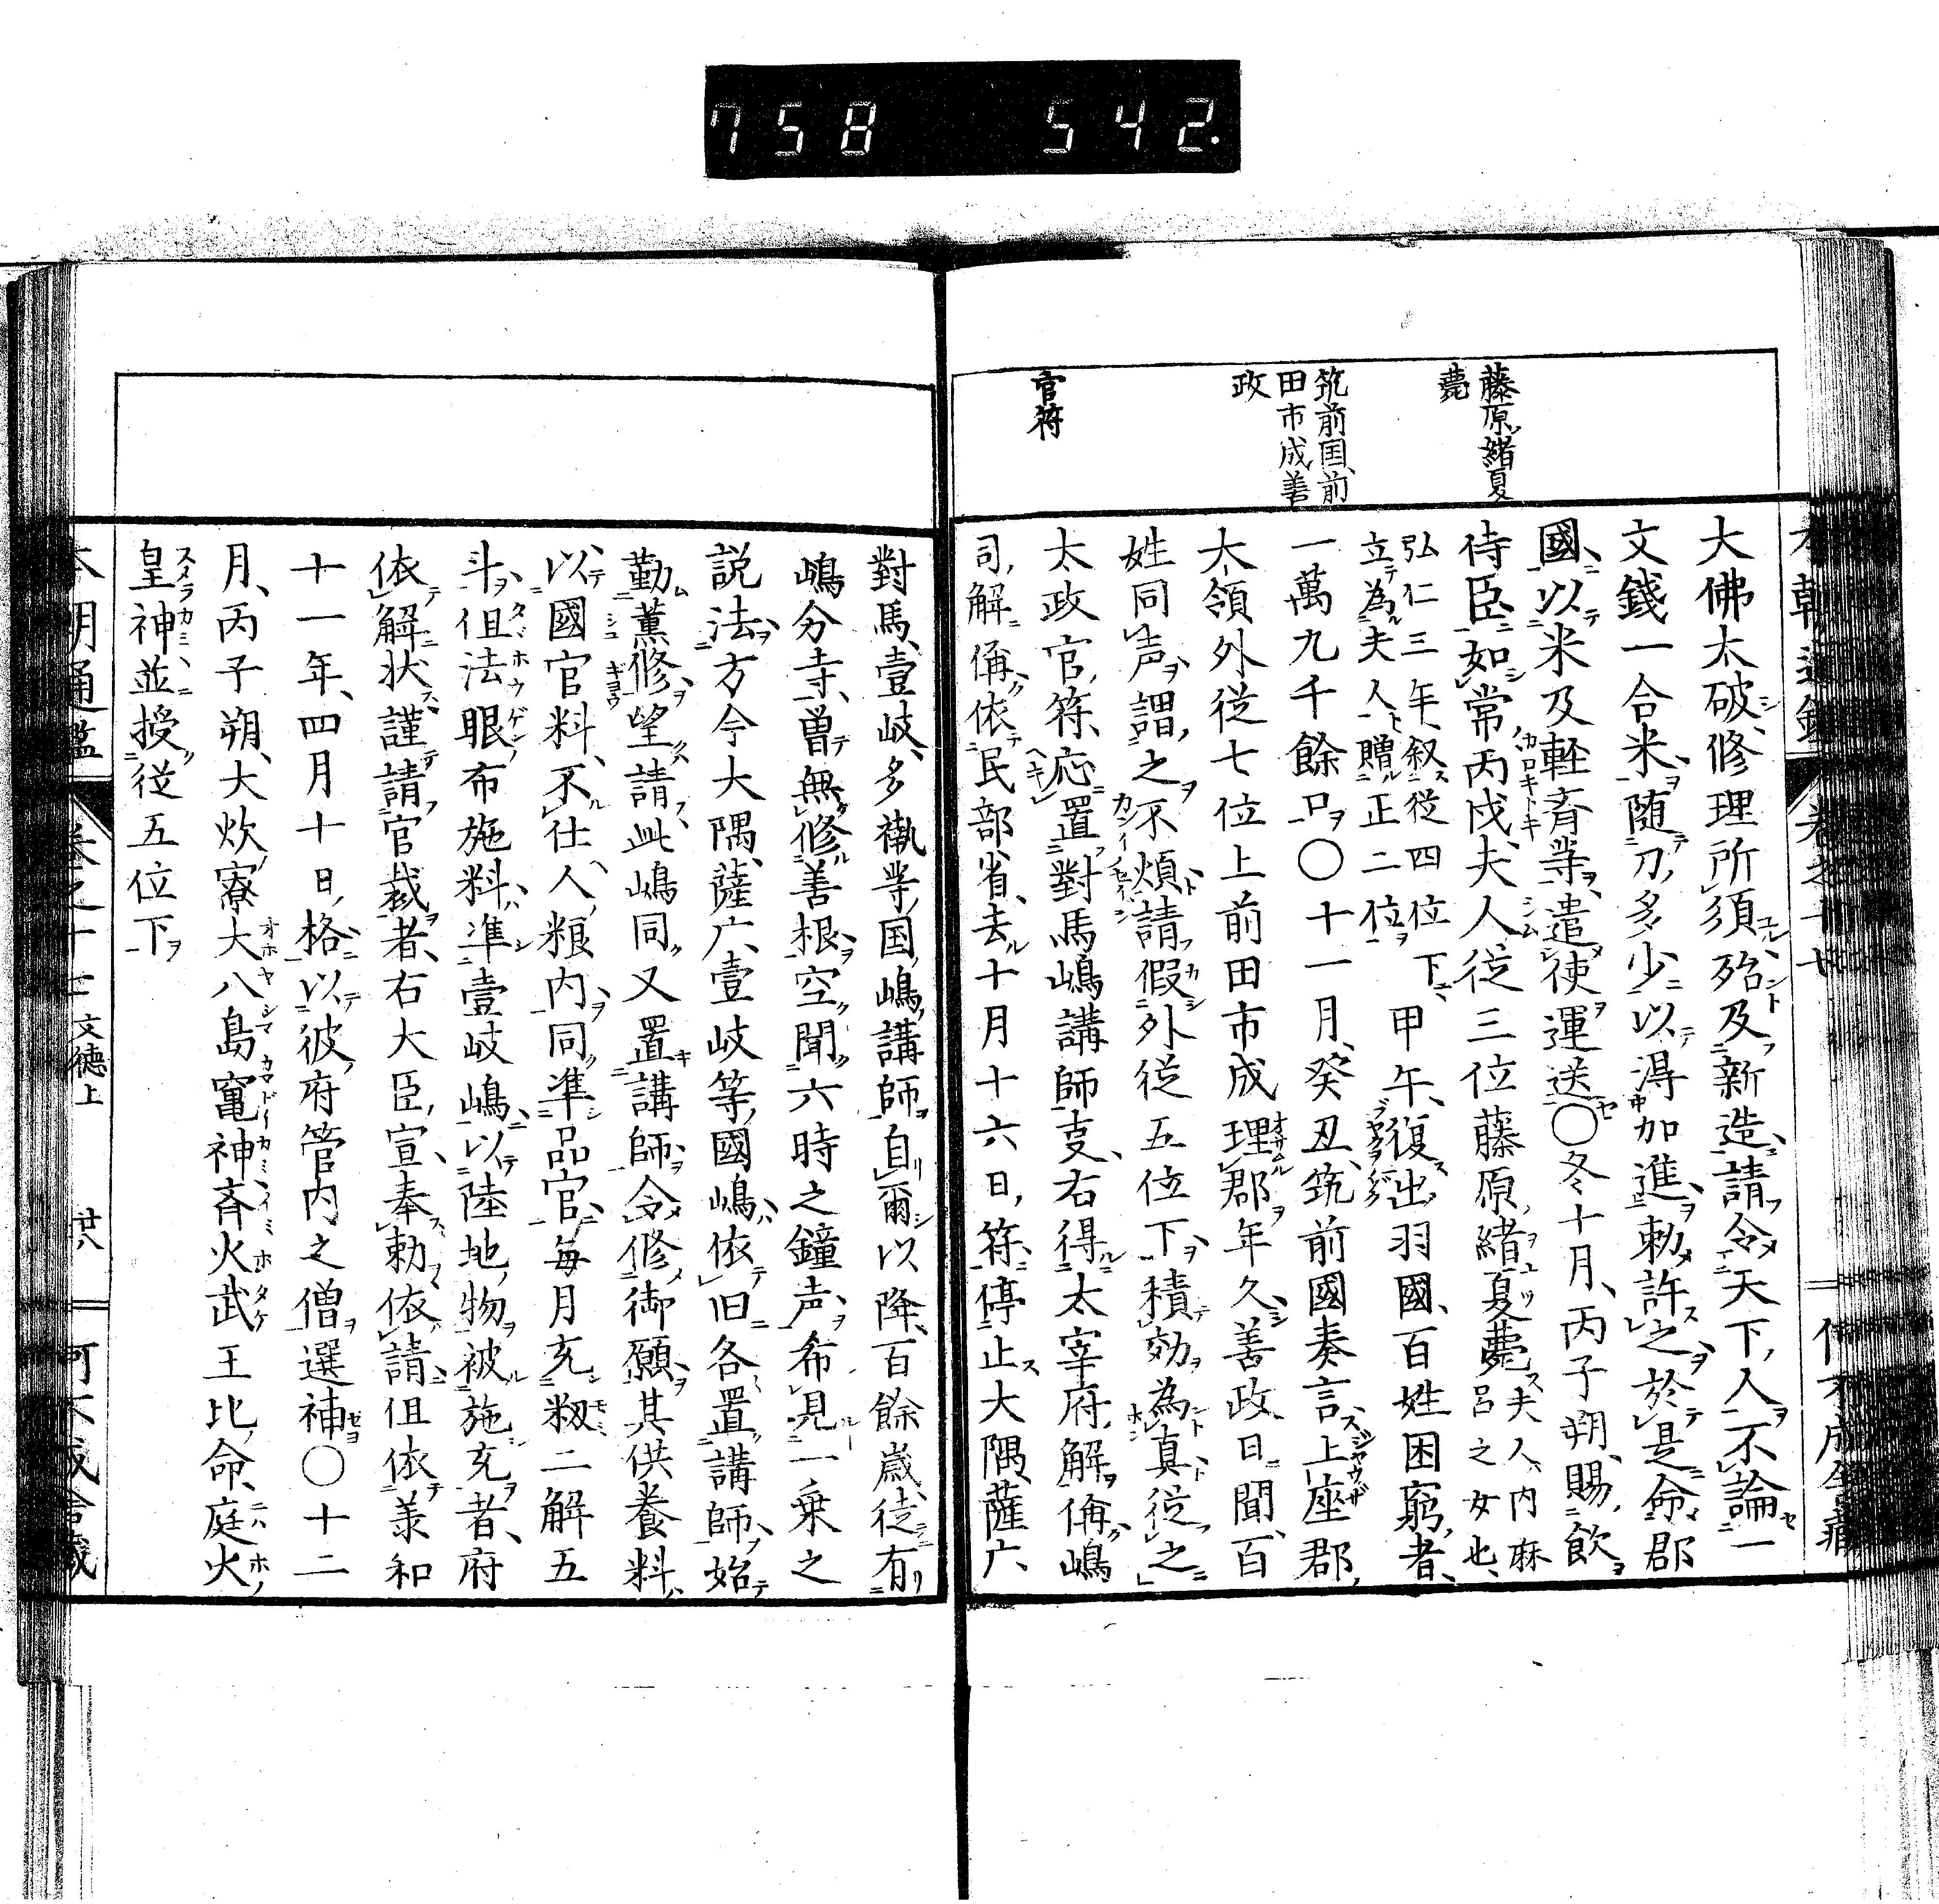 758 542.
藤原緒夏
薨
筑前国前
田市成善
政
官符
大佛太破修理所須殆及新造請令天下人不論一
文錢一合米随刀多少以淂加進勅許之於是命郡
國以米及軽賫䒭遣使運送〇冬十月丙子朔賜飲
侍臣如常丙戌夫人従三位藤原緒夏薨夫人内麻呂之女也
弘仁三年叙従四位下
立為夫人贈正二位
甲午復出羽國百姓困窮者
一萬九千餘口〇十一月癸丑筑前國奏言上座郡
太領外従七位上前田市成理郡年久善政日聞百
姓同声謂之不煩請假外従五位下積効為真従之
太政官符応置對馬嶋講師㕝右得太宰府解偁嶋
司解偁依民部省去十月十六日符停止大隅薩广
對馬壹岐多褹䒭国嶋講師自爾以降百餘歳徒有
嶋分寺曽無修善根空聞六時之鐘声希見一乗之
説法方今大隅薩广壹岐等國嶋依旧各置講師始
勤薫修望請此嶋同又置講師令修御願其供養料
以國官料不仕人粮内同準品官毎月充籾二解五
斗但法眼布施料準壹岐嶋以陸地物被施充者府
依解状謹請官裁者右大臣宣奉勅依請但依羕和
十一年四月十日格以彼府管内之僧選補〇十二
月丙子朔大炊寮大八島竃神斉火武王比命庭火
皇神並授従五位下
文徳上
廿八